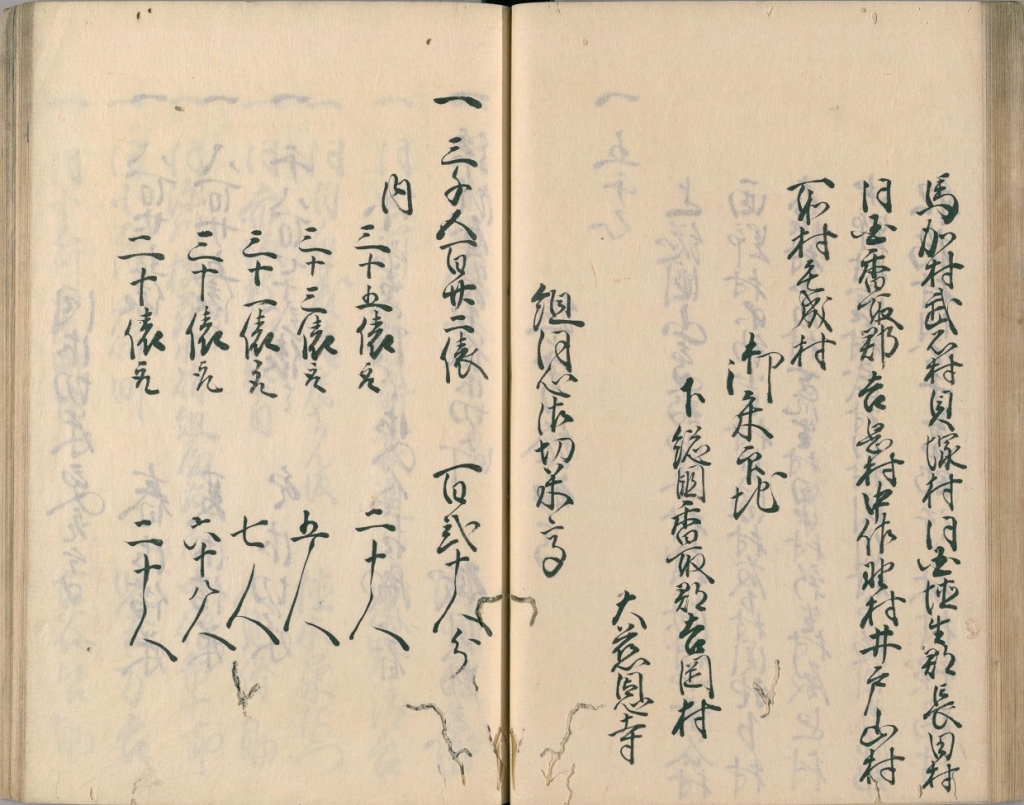 馬加村武石村貝塚村同国埴生郡長田村
同国香取郡吉是村中作野村井戸山村
所村毛成村
御朱印地
下総國香取郡吉岡村
大慈恩寺
組同心御切米高
一 三千五百廿二俵 百弐十人分
内
三十五俵充 二十人
三十三俵充 五人
三十一俵充 七人
三十俵充 六十八人
二十俵充 二十人